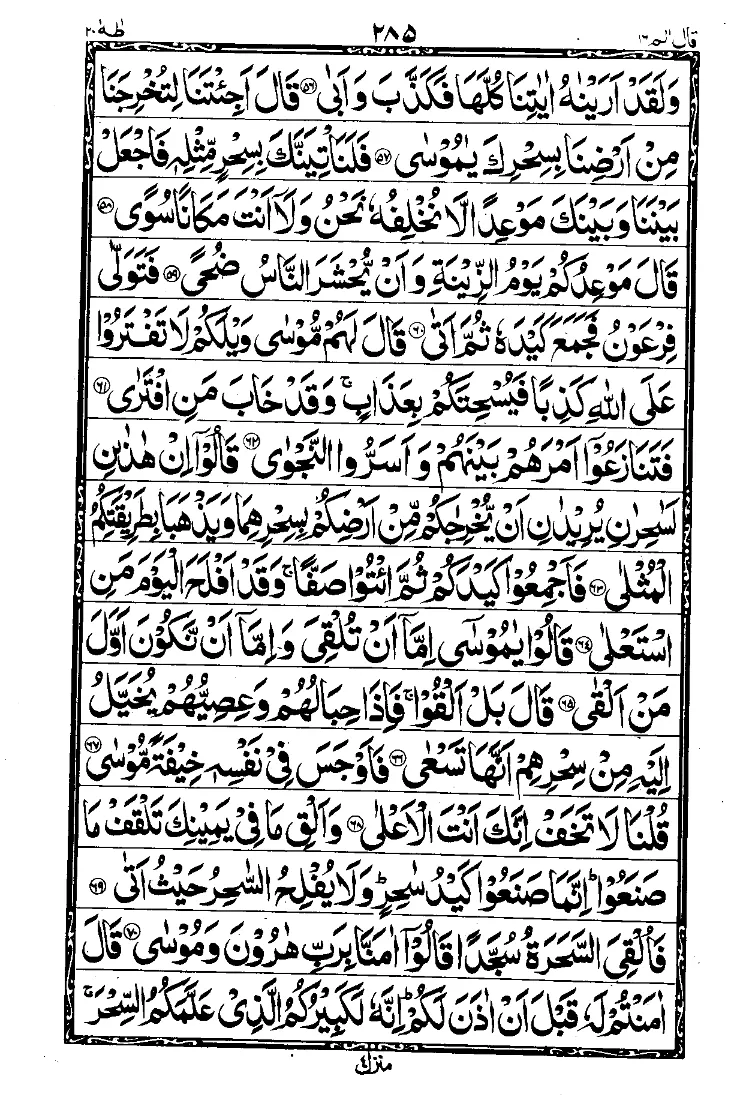 قال الم ١٦ ٢٨٥ طه ٢٠
وَلَقَدْ اَرَيْنٰهُ اٰيٰتِنَا كُلَّهَا فَكَذَّبَ وَ اَبٰى ۝٥٦ قَالَ اَجِئْتَنَا لِتُخْرِجَنَا
مِنْ اَرْضِنَا بِسِحْرِكَ يٰمُوْسٰى ۝٥٧ فَلَنَاْتِيَنَّكَ بِسِحْرٍ مِّثْلِهٖ فَاجْعَلْ
بَيْنَنَا وَبَيْنَكَ مَوْعِدًا لَّا نُخْلِفُهٗ نَحْنُ وَلَاۤ اَنْتَ مَكَانًا سُوًى ۝٥٨
قَالَ مَوْعِدُكُمْ يَوْمُ الزِّيْنَةِ وَ اَنْ يُّحْشَرَ النَّاسُ ضُحًى ۝٥٩ فَتَوَلّٰى
فِرْعَوْنُ فَجَمَعَ كَيْدَهٗ ثُمَّ اَتٰى ۝٦٠ قَالَ لَهُمْ مُّوْسٰى وَيْلَكُمْ لَا تَفْتَرُوْا
عَلَى اللّٰهِ كَذِبًا فَيُسْحِتَكُمْ بِعَذَابٍ ۚ وَقَدْ خَابَ مَنِ افْتَرٰى ۝٦١
فَتَنَازَعُوْۤا اَمْرَهُمْ بَيْنَهُمْ وَ اَسَرُّوا النَّجْوٰى ۝٦٢ قَالُوْۤا اِنْ هٰذٰىنِ
لَسٰحِرٰنِ يُرِيْدٰنِ اَنْ يُّخْرِجٰكُمْ مِّنْ اَرْضِكُمْ بِسِحْرِهِمَا وَيَذْهَبَا بِطَرِيْقَتِكُمُ
الْمُثْلٰى ۝٦٣ فَاَجْمِعُوْا كَيْدَكُمْ ثُمَّ ائْتُوْا صَفًّا ۚ وَقَدْ اَفْلَحَ الْيَوْمَ مَنِ
اسْتَعْلٰى ۝٦٤ قَالُوْا يٰمُوْسٰۤى اِمَّاۤ اَنْ تُلْقِيَ وَ اِمَّاۤ اَنْ نَّكُوْنَ اَوَّلَ
مَنْ اَلْقٰى ۝٦٥ قَالَ بَلْ اَلْقُوْا ۚ فَاِذَا حِبَالُهُمْ وَعِصِيُّهُمْ يُخَيَّلُ
اِلَيْهِ مِنْ سِحْرِهِمْ اَنَّهَا تَسْعٰى ۝٦٦ فَاَوْجَسَ فِيْ نَفْسِهٖ خِيْفَةً مُّوْسٰى ۝٦٧
قُلْنَا لَا تَخَفْ اِنَّكَ اَنْتَ الْاَعْلٰى ۝٦٨ وَاَلْقِ مَا فِيْ يَمِيْنِكَ تَلْقَفْ مَا
صَنَعُوْا ؕ اِنَّمَا صَنَعُوْا كَيْدُ سٰحِرٍ ؕ وَلَا يُفْلِحُ السَّاحِرُ حَيْثُ اَتٰى ۝٦٩
فَاُلْقِيَ السَّحَرَةُ سُجَّدًا قَالُوْۤا اٰمَنَّا بِرَبِّ هٰرُوْنَ وَمُوْسٰى ۝٧٠ قَالَ
اٰمَنْتُمْ لَهٗ قَبْلَ اَنْ اٰذَنَ لَكُمْ ؕ اِنَّهٗ لَكَبِيْرُكُمُ الَّذِيْ عَلَّمَكُمُ السِّحْرَ ۚ
منزل ٤